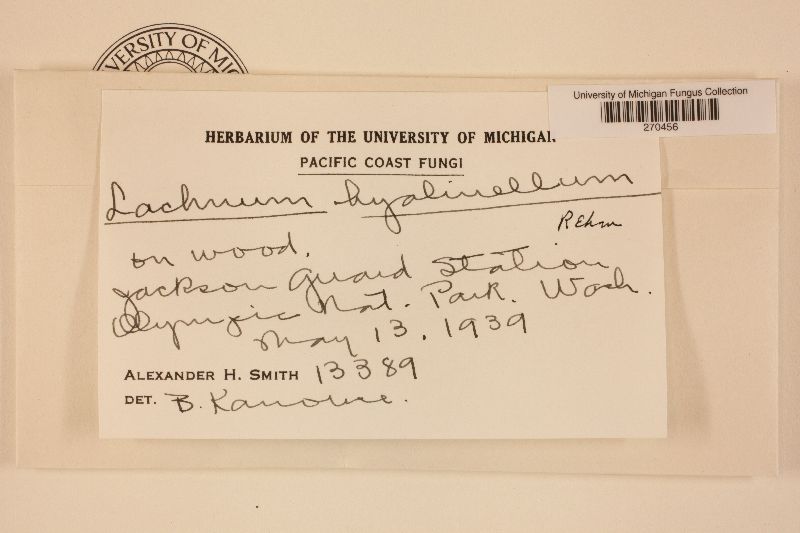 VERSITY OF MIC
University of Michigan Fungus Collection
270456
HERBARIUM OF THE UNIVERSITY OF MICHIGAN
PACIFIC COAST FUNGI
Lachnum hyalinellum
Rehm
on wood.
Jackson Guard Station
Olympic Nat. Park. Wash.
May 13, 1939
ALEXANDER H. SMITH 13389
DET. B. Kanouse.